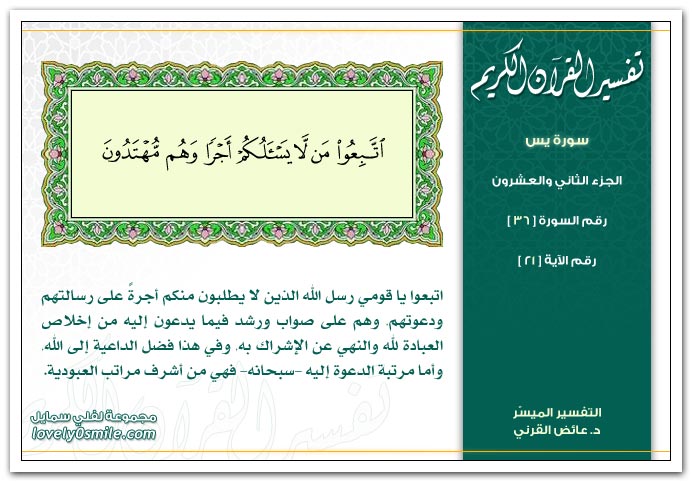 تفسير القرآن الكريم
سورة يس
الجزء الثاني والعشرون
رقم السورة [ ٣٦ ]
رقم الآية [ ٢١ ]
ٱتَّبِعُوا۟ مَن لَّا يَسْـَٔلُكُمْ أَجْرًا وَهُم مُّهْتَدُونَ
اتبعوا يا قومي رسل الله الذين لا يطلبون منكم أجرةً على رسالتهم
ودعوتهم، وهم على صواب ورشد فيما يدعون إليه من إخلاص
العبادة لله والنهي عن الإشراك به، وفي هذا فضل الداعية إلى الله،
وأما مرتبة الدعوة إليه –سبحانه– فهي من أشرف مراتب العبودية.
التفسير الميسّر
د. عائض القرني
مجموعة لفلي سمايل
lovely0smile.com
تفسير القرآن الكريم